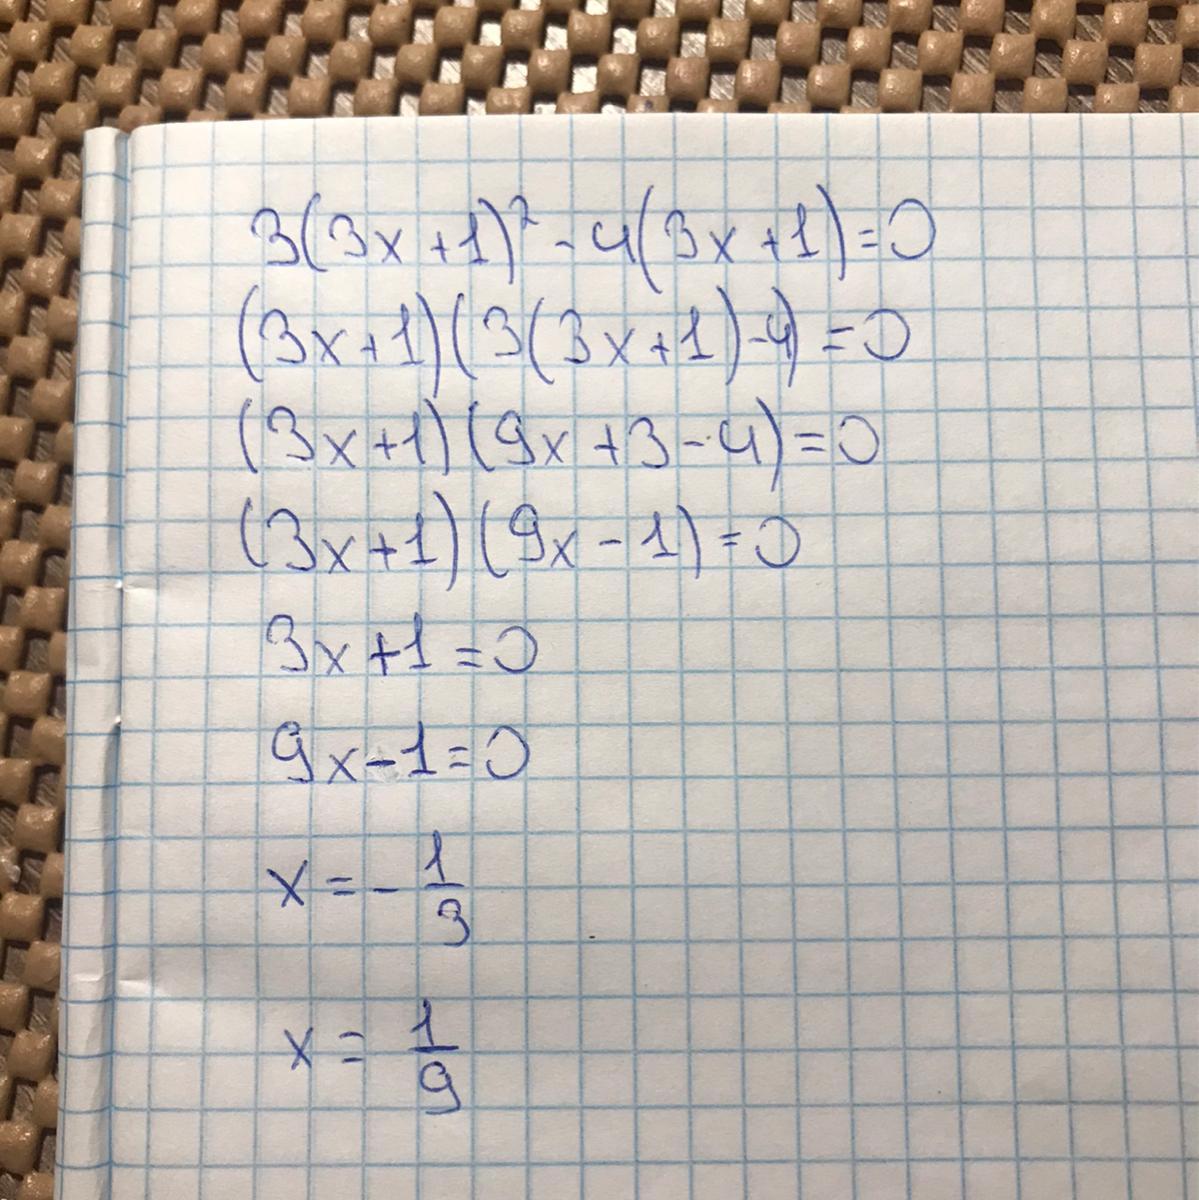 3(3x+1)²-4(3x+1)=0
(3x+1)(3(3x+1)-4)=0
(3x+1)(9x+3-4)=0
(3x+1)(9x-1)=0
3x+1=0
9x-1=0
x=-1/3
x=1/9